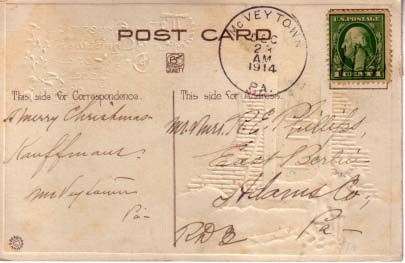 POST CARD
McVEYTOWN
DEC
23
AM
1914
PA.
U.S. POSTAGE
1 CENT 1
This side for Correspondence.
This side for Address.
A Merry Christmas
Kauffmans
McVeytown
Pa-
Mr. & Mrs. R.C. Phillips,
East Berlin
Adams Co,
Pa-
RD 2